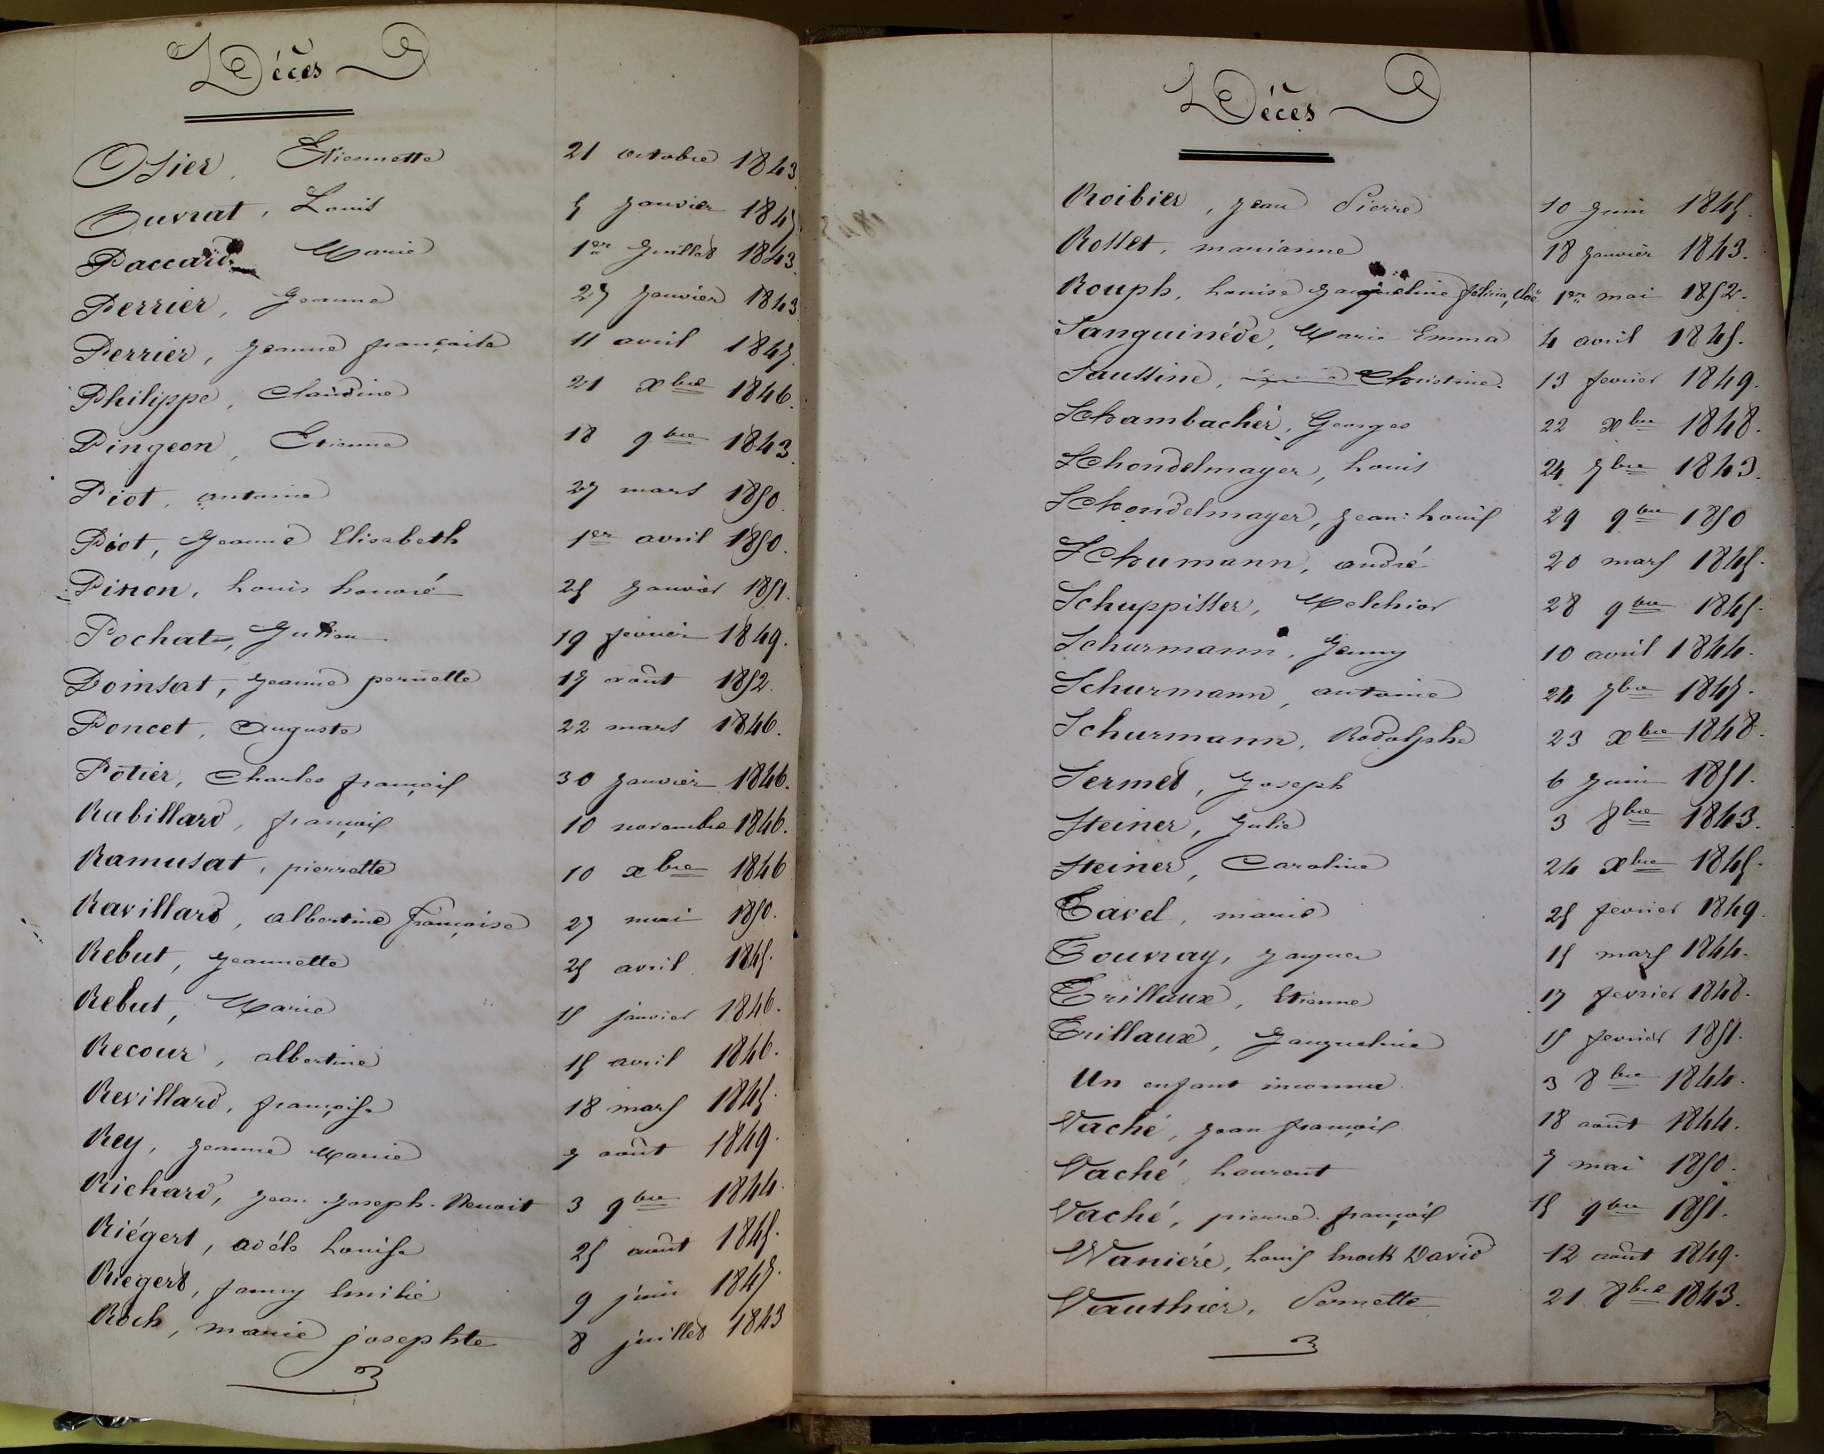 Décès
Osier, Etiennette 21 octobre 1843
Ouvrat, Louis 5 janvier 1845
Paccard, Marie 1er Juillet 1843
Perrier, Jeanne 27 Janvier 1843
Perrier, Jeanne françoise 11 avril 1847
Philippe, Claudine 21 xbre 1846.
Pingeon, Etienne 18 9bre 1843.
Piot, antoine 27 mars 1850.
Piot, Jeanne Elisabeth 1er avril 1850.
Pinon, Louis honoré 25 Janvier 1851.
Pochat, Julien 19 fevrier 1849.
Poinsat, Jeanne pernette 17 août 1852.
Poncet, Auguste 22 mars 1846.
Potier, Charles françois 30 Janvier 1846.
Rabillard, françois 10 novembre 1846.
Ramusat, pierrette 10 xbre 1846
Ravillard, albertine françoise 27 mai 1850.
Rebut, Jeannette 25 avril 1845.
Rebut, Marie 15 janvier 1846.
Recour, albertine 15 avril 1846.
Revillard, françoise 18 mars 1845.
Rey, Jeanne Marie 7 août 1849.
Richard, Jean-Joseph-Benoit 3 9bre 1844.
Riégert, adéle Louise 25 août 1845.
Riegert, fanny Emilie 9 juin 1847.
Roch, marie josephte 8 juillet 1843
Décès
Roibier, Jean Pierre 10 Juin 1845.
Rosset, marianne 18 Janvier 1843.
Rouph, Louise Jacqueline félicia, 1er mai 1852.
Sanguinéde, Marie-Emma 4 avril 1845.
Saussine, Christine. 13 fevrier 1849.
Schambacher, Georges 22 xbre 1848.
Schondelmayer, Louis 24 7bre 1843.
Schondelmayer, Jean-Louis 29 9bre 1850
Schumann, andré 20 mars 1845.
Schuppisser, Melchior 28 9bre 1845.
Schurmann, Jenny 10 avril 1844.
Schurmann, antoine 24 7bre 1847.
Schurmann, Rodolphe 23 xbre 1848.
Sermet, Joseph 6 Juin 1851.
Steiner, Julie 3 8bre 1843.
Steiner, Caroline 24 xbre 1845.
Tavel, marie 25 fevrier 1849.
Touvray, Jacques 15 mars 1844.
Trillaux, Etienne 17 fevrier 1848.
Trillaux, Jacqueline 15 fevrier 1851.
Un enfant inconnu 3 8bre 1844.
Vaché, Jean françois 18 août 1844.
Vaché, Laurent 7 mai 1850.
Vaché, pierre-françois 15 9bre 1851.
Waniéré, Louis Enock David 12 août 1849.
Vauthier, Pernette 21 8bre 1843.